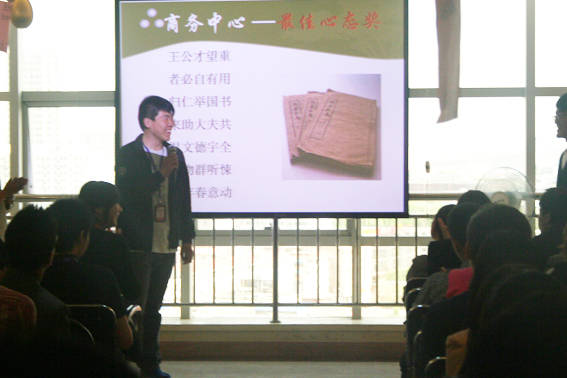 商务中心—最佳心态奖
王公才望重
者必自有用
归仁举国书
来助大夫共
文德宇全
物群听悚
春意动